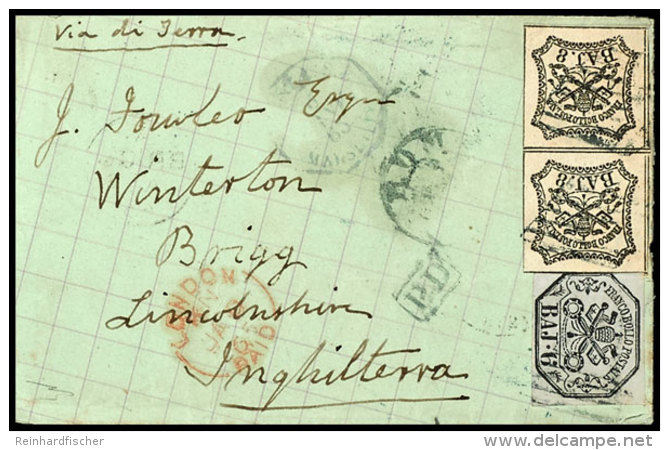 Via di Terra.
J. Fowler Esqre
Winterton
Brigg
Lincolnshire
Inghilterra
LONDON
PAID
PD
BAJ. 8
FRANCO BOLLO POSTALE
BAJ. 8
FRANCO BOLLO POSTALE
FRANCO BOLLO POSTALE
BAJ. 6
Reinhardfischer
delcampe.net